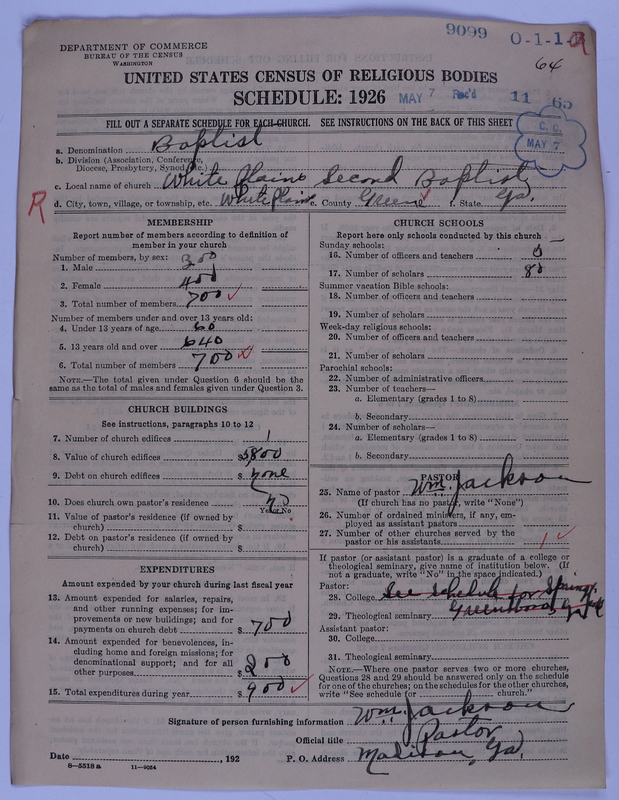 9099 0-1-1
64
DEPARTMENT OF COMMERCE
BUREAU OF THE CENSUS
WASHINGTON
UNITED STATES CENSUS OF RELIGIOUS BODIES
SCHEDULE: 1926 MAY 7 Rec'd 11 65
FILL OUT A SEPARATE SCHEDULE FOR EACH CHURCH. SEE INSTRUCTIONS ON THE BACK OF THIS SHEET
C. C.
MAY 7
a. Denomination Baptist
b. Division (Association, Conference, Diocese, Presbytery, Synod, etc.)
c. Local name of church White Plains Second Baptist
R
d. City, town, village, or township, etc. White Plains e. County Greene f. State Ga.
MEMBERSHIP
Report number of members according to definition of
member in your church
Number of members, by sex:
1. Male 300
2. Female 400
3. Total number of members 700
Number of members under and over 13 years old:
4. Under 13 years of age 60
5. 13 years old and over 640
6. Total number of members 700
NOTE.—The total given under Question 6 should be the
same as the total of males and females given under Question 3.
CHURCH BUILDINGS
See instructions, paragraphs 10 to 12
7. Number of church edifices 1
8. Value of church edifices $ 5800
9. Debt on church edifices $ none
10. Does church own pastor's residence no
Yes or No
11. Value of pastor's residence (if owned by
church) $
12. Debt on pastor's residence (if owned by
church) $
EXPENDITURES
Amount expended by your church during last fiscal year
13. Amount expended for salaries, repairs,
and other running expenses; for im-
provements or new buildings; and for
payments on church debt $ 700
14. Amount expended for benevolences, in-
cluding home and foreign missions; for
denominational support; and for all
other purposes $ 200
15. Total expenditures during year $ 900
CHURCH SCHOOLS
Report here only schools conducted by this church
Sunday schools:
16. Number of officers and teachers
17. Number of scholars 80
Summer vacation Bible schools:
18. Number of officers and teachers
19. Number of scholars
Week-day religious schools:
20. Number of officers and teachers
21. Number of scholars
Parochial schools:
22. Number of administrative officers
23. Number of teachers—
a. Elementary (grades 1 to 8)
b. Secondary
24. Number of scholars—
a. Elementary (grades 1 to 8)
b. Secondary
PASTOR
25. Name of pastor Wm. Jackson
(If church has no pastor, write "None")
26. Number of ordained ministers, if any, em-
ployed as assistant pastors
27. Number of other churches served by the
pastor or his assistants 1
If pastor (or assistant pastor) is a graduate of a college or
theological seminary, give name of institution below. (If
not a graduate, write "No" in the space indicated.)
Pastor:
28. College See schedule for Spring,
29. Theological seminary Greensboro, Ga
Assistant pastor:
30. College
31. Theological seminary
NOTE.—Where one pastor serves two or more churches,
Questions 28 and 29 should be answered only on the schedule
for one of the churches; on the schedules for the other churches,
write "See schedule for church."
Signature of person furnishing information Wm. Jackson
Official title Pastor
Date , 192 P. O. Address Madison, Ga.
8—5518 a 11—9064